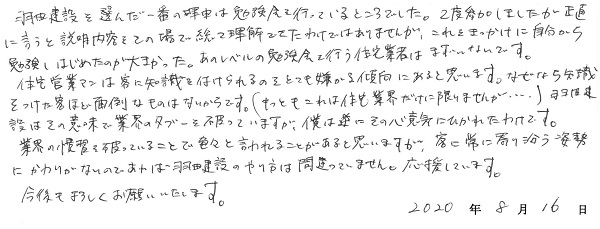 羽田建設を選んだ一番の理由は勉強会を行っているところでした。2度参加しましたが正直
に言うと説明内容をその場で総て理解できたわけではありませんが、これをきっかけに自分から
勉強しはじめたのが大きかった。あのレベルの勉強会を行う住宅業者はまずいないです。
住宅営業マンは客に知識を付けられるのをとても嫌がる傾向にあると思います。なぜなら知識
をつけた客ほど面倒なものはないからです。(もっともこれは住宅業界だけに限りませんが・・・・)羽田建
設はその意味で業界のタブーを破っていますが、僕は逆にその心意気にひかれたわけです。
業界の慣習を破っていることで色々と言われることがあると思いますが、客に常に寄り沿う姿勢
にかわりがないのであれば羽田建設のやり方は間違っていません。応援しています。
今後もよろしくお願いいたします。
2020 年 8 月 16 日